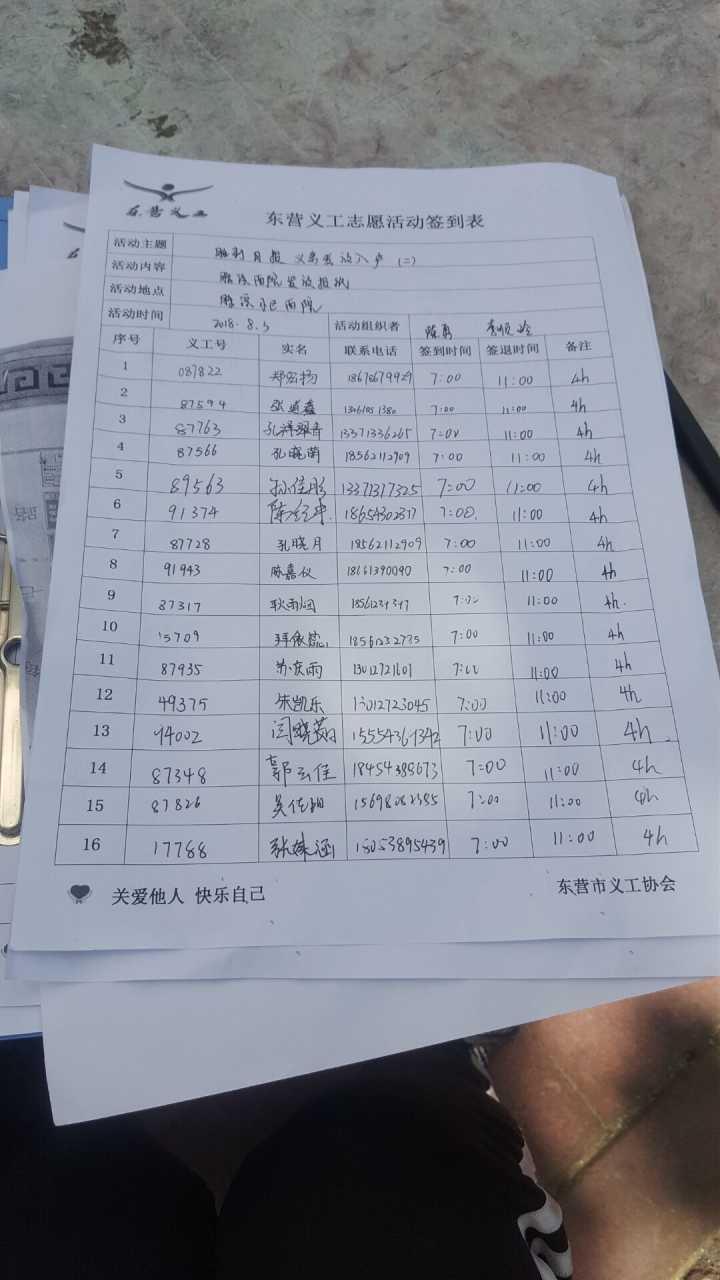 东营义工
东营义工志愿活动签到表
活动主题
活动内容
活动地点
活动时间 2018.8.5 活动组织者 陈勇
序号 义工号 实名 联系电话 签到时间 签退时间 备注
1 087822 18678679929 7:00 11:00 4h
2 87594 7:00 11:00 4h
3 87763 13371336265 7:00 11:00 4h
4 87566 孔晓萌 18562112909 7:00 11:00 4h
5 89563 孙佳彤 13371317325 7:00 11:00 4h
6 91374 18654302317 7:00 11:00 4h
7 87728 孔晓月 18562112909 7:00 11:00 4h
8 91943 陈嘉仪 18661390090 7:00 11:00 4h
9 87317 耿雨烟 7:00 11:00 4h.
10 15709 18561232735 7:00 11:00 4h
11 87935 苏庆雨 13012721601 7:00 11:00 4h
12 49375 朱凯乐 13012723045 7:00 11:00 4h
13 94002 闫晓菊 15554361342 7:00 11:00 4h
14 87348 郭云佳 18454385673 7:00 11:00 4h
15 87826 15698082385 7:00 11:00 4h
16 17788 张姝涵 18053895439 7:00 11:00 4h
关爱他人 快乐自己 东营市义工协会